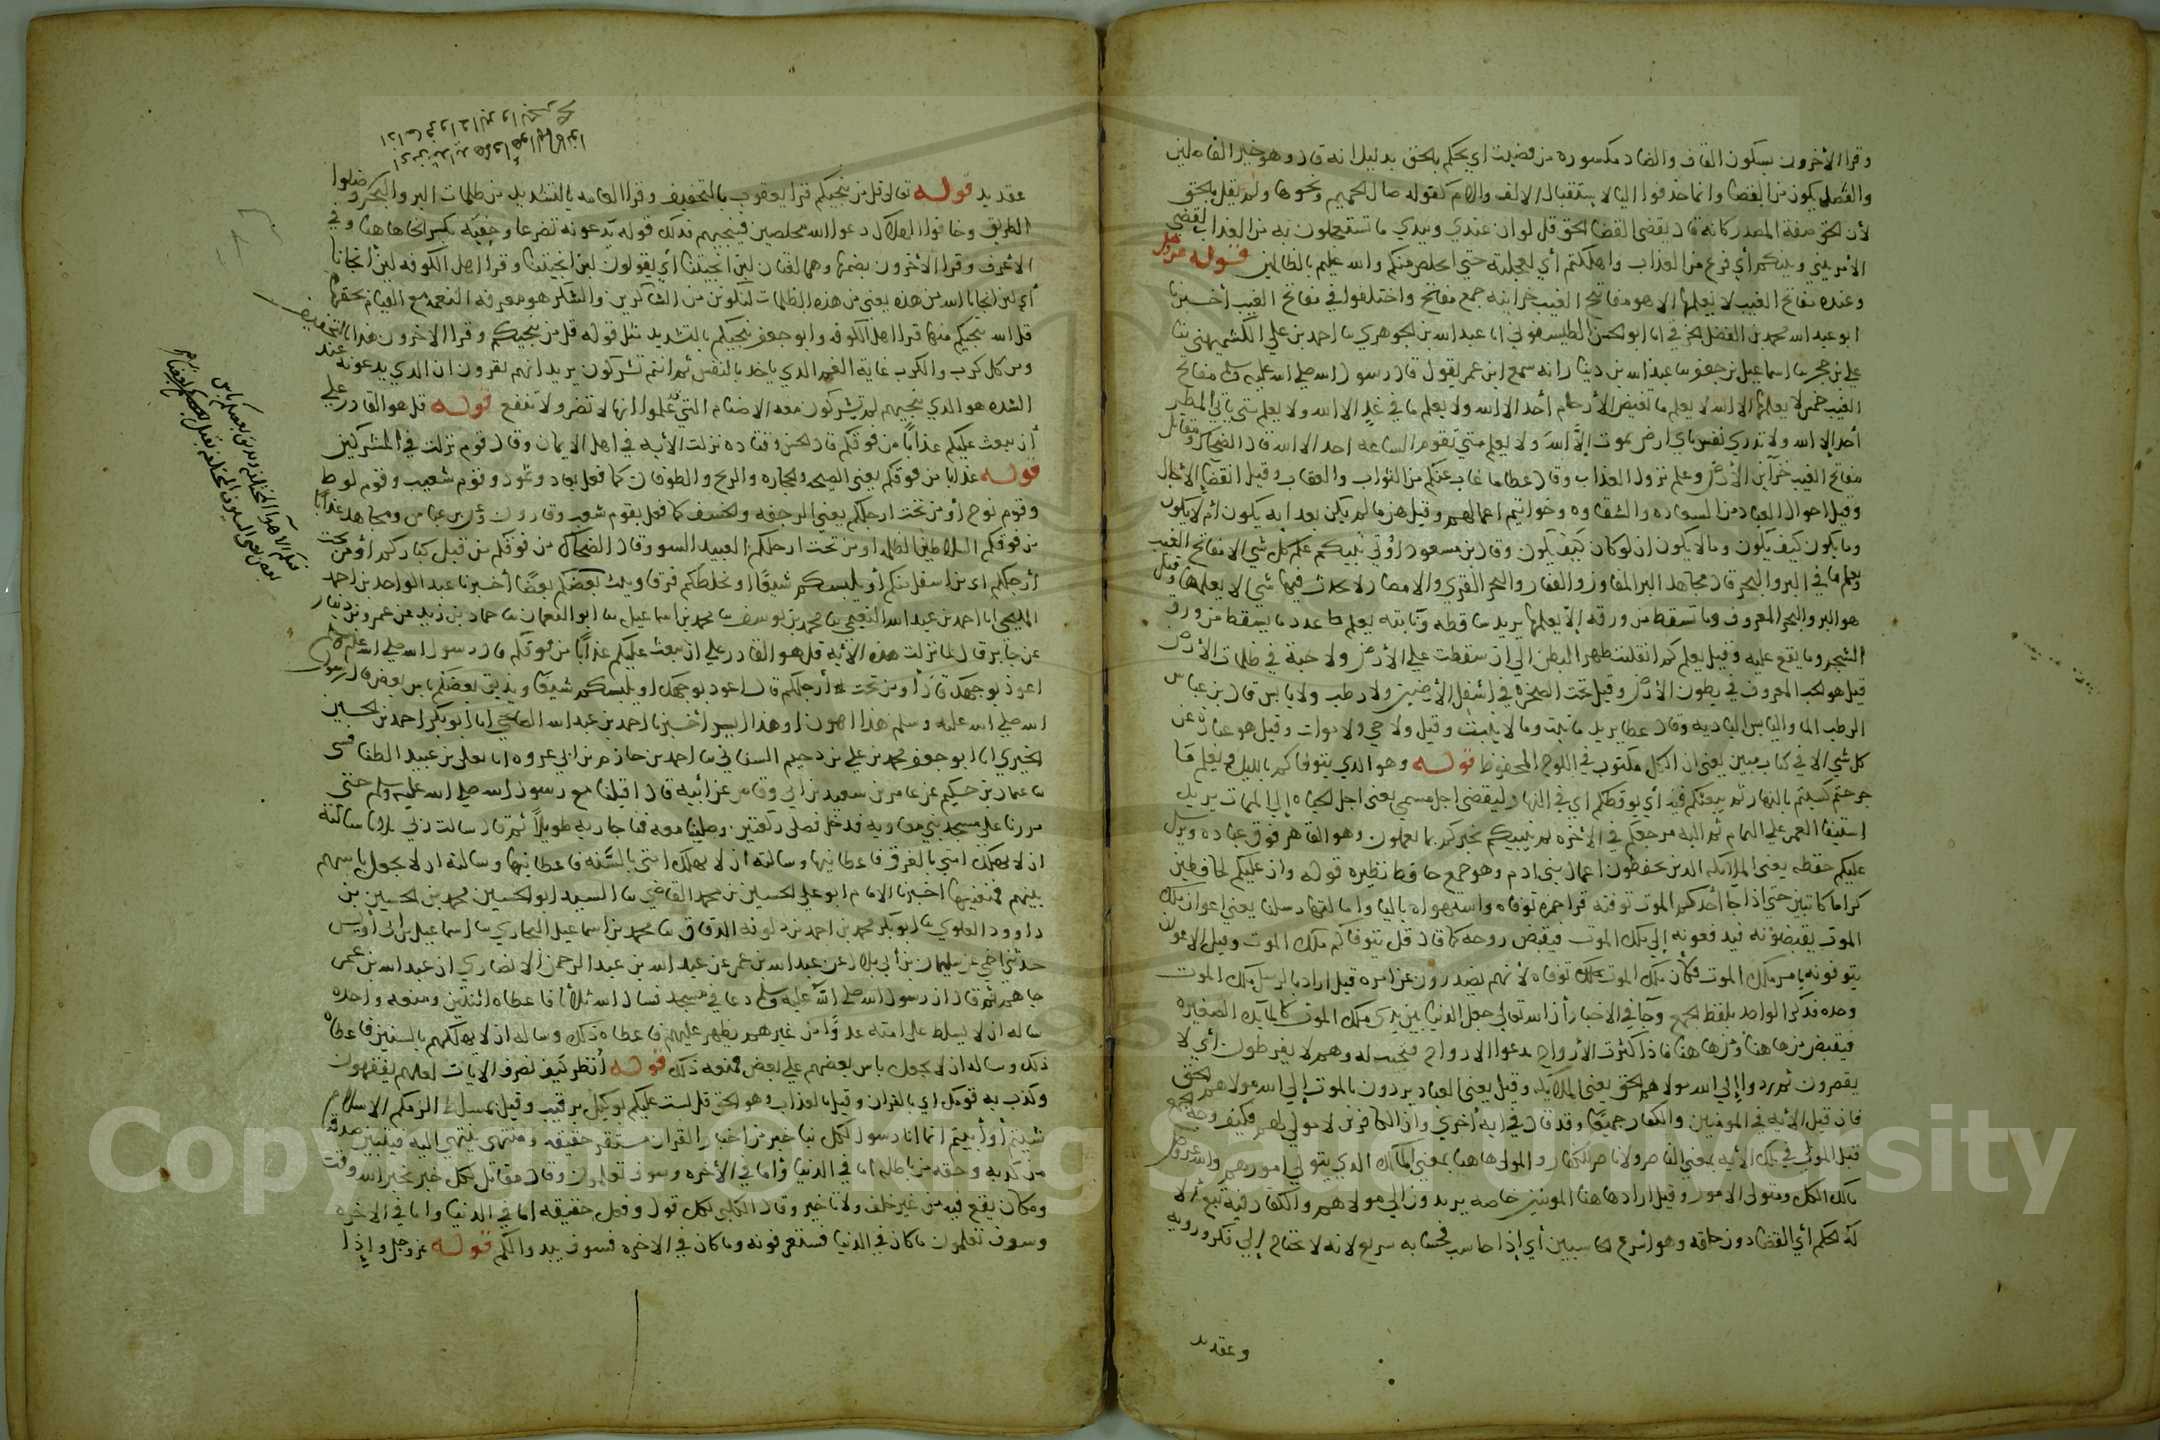 وقرا الاخرون بسكون القاف والضاد مكسوره من قضيت اي يحكم بالحق بدليل انه قال وهو خير الفاصلين
والفصل يكون من القضا وانما حذفوا اليا لاستقبال الالف واللام كقوله صال الجحيم ونحوها ولم يقل بالحق
لان الحق صفة المصدر كانه قال يقضي القضا الحق قل لو ان عندي وبيدي ما تستعجلون به من العذاب لقضي
الامر بيني وبينكم أي فرغ من العذاب واهلكتم أي لعجلته حتي اتخلص منكم والله عليم بالظالمين قوله عز وجل
وعنده مفاتح الغيب لا يعلمها الا هو مفاتح الغيب خزاينه جمع مفتح واختلفوا في مفاتح الغيب أخبرنا
ابو عبد الله محمد بن الفضل الخرقي انا ابو الحسن الطيسفوني انا عبد الله بن الجوهري نا احمد بن علي الكشميهني نا
علي بن حجر نا اسماعيل بن جعفر نا عبد الله بن دينار انه سمع ابن عمر يقول قال رسول الله صلي الله عليه وسلم مفاتح
الغيب خمس لا يعلمها الا الله لا يعلم ما تغيض الأرحام أحد الا الله ولا يعلم ما في غدٍ الا الله ولا يعلم متي ياتي المطر
أحد إلا الله ولا تدري نفس باي ارض تموت إلا الله ولا يعلم متي تقوم الساعه احد الا الله قال الضحاك ومقاتل
مفاتح الغيب خزاين الأرض وعلم نزول العذاب وقال عطا ما غاب عنكم من الثواب والعقاب وقيل انقضا الأجال
وقيل احوال العباد من السعاده والشقاوه وخواتيم اعمالهم وقيل هو ما لم يكن بعد انه يكون أم لا يكون
وما يكون كيف يكون وما لا يكون ان لو كان كيف يكون وقال بن مسعود أوتي نبيكم علم كل شي الا مفاتح الغيب
ويعلم ما في البر والبحر قال مجاهد البر المفاوز والقفار والبحر القري والامصار لا يحدث فيها شي الا يعلمها وقيل
هو البر والبحر المعروف وما تسقط من ورقه إلا يعلمها يريد ساقطه وثابته يعلم عدد ما يسقط من ورق
الشجر وما يبقي عليه وقيل يعلم كم انقلبت ظهرا لبطن الي ان سقطت علي الأرض ولا حبة في ظلمات الأرض
قيل هو الحب المعروف في بطون الأرض وقيل تحت الصخره في أسفل الأرضين ولا رطب ولا يابس قال بن عباس
الرطب الما واليابس الباديه وقال عطا يريد ما ينبت وما لا ينبت وقيل ولا حي ولا موات وقيل هو عباره عن
كل شي الا في كتاب مبين يعني ان الكل مكتوب في اللوح المحفوظ قوله وهو الذي يتوفاكم بالليل ويعلم ما
جرحتم كسبتم بالنهار ثم يبعثكم فيه أي يوقظكم اي في النهار وليقضي اجل مسمي يعني اجل الحياه إلي الممات يريد
استيفا العمر علي التمام ثم اليه مرجعكم في الاخره ثم ينبيكم يخبركم بما تعملون وهو القاهر فوق عباده ويرسل
عليكم حفظه يعني الملايكه الذين يحفظون اعمال بني ادم وهو جمع حافظ نظيره قوله وان عليكم لحافظين
كراما كاتبين حتي اذا جا أحدكم الموت توفته قرا حمزه توفاه واستهواه باليا وامالتها رسلنا يعني اعوان ملك
الموت يقبضونه فيدفعونه إلي ملك الموت فيقبض روحه كما قال قل يتوفاكم ملك الموت وقيل الاعوان
يتوفونه بامر ملك الموت فكأن ملك الموت توفاه لأنهم يصدرون عن امره قيل اراد بالرسل ملك الموت
وحده فذكر الواحد بلفظ الجمع وجآ في الاخبار أن الله تعالي جعل الدنيا بين يدي ملك الموت كالمايده الصغيره
فيقبض من هاهنا ومن هاهنا فاذا كثرت الأرواح يدعوا الارواح فتجيب له وهم لا يفرطون أي لا
يقصرون ثم ردوا إلي الله مولاهم الحق يعني الملايكه وقيل يعني العباد يردون بالموت إلي الله مولاهم الحق
فان قيل الأيه في المومنين والكفار جميعًا وقد قال في ايه أخري وان الكافرين لا مولي لهم فكيف وجه الجمع
قيل المولي في تلك الأيه بمعني الناصر ولا ناصر للكفار والمولي هاهنا بمعني المالك الذي يتولي امورهم والله عز وجل
مالك الكل ومتولي الامور وقيل اراد هاهنا المومنين خاصه يردون الي مولاهم والكفار فيه تبع ألا
له الحكم أي القضا دون خلقه وهو أسرع الحاسبين أي إذا حاسب فحسابه سريع لانه لا يحتاج إلي فكر ورويه
وعقد يد
عقد يد قوله تعالي قل من ينجيكم قرا يعقوب بالتخفيف وقرا العامه بالتشديد من ظلمات البر والبحر
الطريق وخافوا الهلاك دعوا الله مخلصين فينجيهم فذلك قوله تدعونه تضرعا وخفيه بكسر الخا هاهنا وفي
الاعراف وقرا الاخرون بضمها وهما لغتان لئن انجيتنا أي يقولون لئن انجيتنا وقرا اهل الكوفه لئن أنجانا
أي لئن انجانا الله من هذه يعني من هذه الظلمات لنكونن من الشاكرين والشكر هو معرفه النعمه مع القيام بحقها
قل الله ينجيكم منها قرا اهل الكوفه وابو جعفر ينجيكم بالتشديد مثل قوله قل من ينجيكم وقرا الاخرون هذا بالتخفيف
ومن كل كرب والكرب غاية الغم الذي ياخذ بالنفس ثم انتم تشركون يريد انهم يقرون ان الذي يدعونه عند
الشده هو الذي ينجيهم ثم تشركون معه الاصنام التي علموا انها لا تضر ولا تنفع قوله قل هو القادر علي
أن يبعث عليكم عذابًا من فوقكم قال الحسن وقتاده نزلت الأيه في اهل الايمان وقال قوم نزلت في المشركين
قوله عذابا من فوقكم يعني الصيحه والحجاره والريح والطوفان كما فعل بعاد وثمود وقوم شعيب وقوم لوط
وقوم نوح أو من تحت ارجلكم يعني الرجفه والخسف كما فعل بقوم شعيب وقارون وعن بن عباس ومجاهد عذابًا
من فوقكم السلاطين الظلمه او من تحت ارجلكم العبيد السو وقال الضحاك من فوقكم من قبل كباركم أو من تحت
أرجلكم اي من اسفل منكم أو يلبسكم شيعًا او يخلطكم فرقا ويبث بعضكم بعضًا أخبرنا عبد الواحد بن احمد
المليحي انا احمد بن عبد الله النعيمي نا محمد بن يوسف نا محمد بن اسماعيل نا ابو النعمان نا حماد بن زيد عن عمرو بن دينار
عن جابر قال لما نزلت هذه الأيه قل هو القادر علي ان يبعث عليكم عذابًا من فوقكم قال رسول الله صلي الله عليه وسلم
اعوذ بوجهك قال أو من تحت أرجلكم قال اعوذ بوجهك او يلبسكم شيعًا ويذيق بعضكم باس بعض قال رسول
الله صلي الله عليه وسلم هذا اهون او هذا ايسر أخبرنا احمد بن عبد الله الصالحي انا ابو بكر احمد بن الحسين
الحيري انا ابو جعفر محمد بن علي بن دحيم الشيباني نا احمد بن حازم بن ابي عروه انا يعلي بن عبيد الطنافسي
نا عثمان بن حكيم عن عامر بن سعيد بن ابي وقاص عن أبيه قال اقبلنا مع رسول الله صلي الله عليه وسلم حتي
مررنا علي مسجد بني معاويه فدخل فصلي ركعتين وصلينا معه فناجا ربه طويلًا ثم قال سالت ربي ثلاثا سالته
ان لا يهلك امتي بالغرق فاعطانيها وسالته ان لا يهلك امتي بالسنه فاعطانيها وسالته ان لا يجعل باسهم
بينهم فمنعنيها اخبرنا الامام ابو علي الحسين بن محمد القاضي نا السيد ابو الحسين محمد بن الحسين بن
داوود العلوي نا ابو بكر محمد بن احمد بن دلويه الدقاق نا محمد بن اسماعيل البخاري نا اسماعيل بن ابي أويس
حدثني اخي عن سليمان بن أبي بلال عن عبد الله بن عمر عن عبد الله بن عبد الرحمن الانصاري ان عبد الله بن عمر
جاهم ثم قال ان رسول الله صلي الله عليه وسلم دعا في مسجد فسال الله ثلاثًا فاعطاه اثنتين ومنعه واحده
ساله ان لا يسلط علي امته عدوًا من غيرهم يظهر عليهم فاعطاه ذلك وساله ان لا يهلكهم بالسنين فاعطاه
ذلك وساله ان لا يجعل باس بعضهم علي بعض فمنعه ذلك قوله أنظر كيف نصرف الايات لعلهم يفقهون
وكذب به قومك اي بالقران وقيل بالعذاب وهو الحق قل لست عليكم بوكيل برقيب وقيل بمسلط الزمكم الاسلام
شيتم أو أبيتم انما انا رسول لكل نبا خبر من اخبار القران مستقر حقيقه ومنتهي ينتهي اليه فيتبين صدقه
من كذبه وحقه من باطله اما في الدنيا وأما في الأخره وسوف تعلمون وقال مقاتل لكل خبر يخبر الله وقت
ومكان يقع فيه من غير خلف ولا تاخير وقال الكلبي لكل قول وفعل حقيقه اما في الدنيا واما في الاخره
وسوف تعلمون ما كان في الدنيا فستعرفونه وما كان في الاخره فسوف يبدوا لكم قوله عز وجل وإذا
Copyright © King Saud University